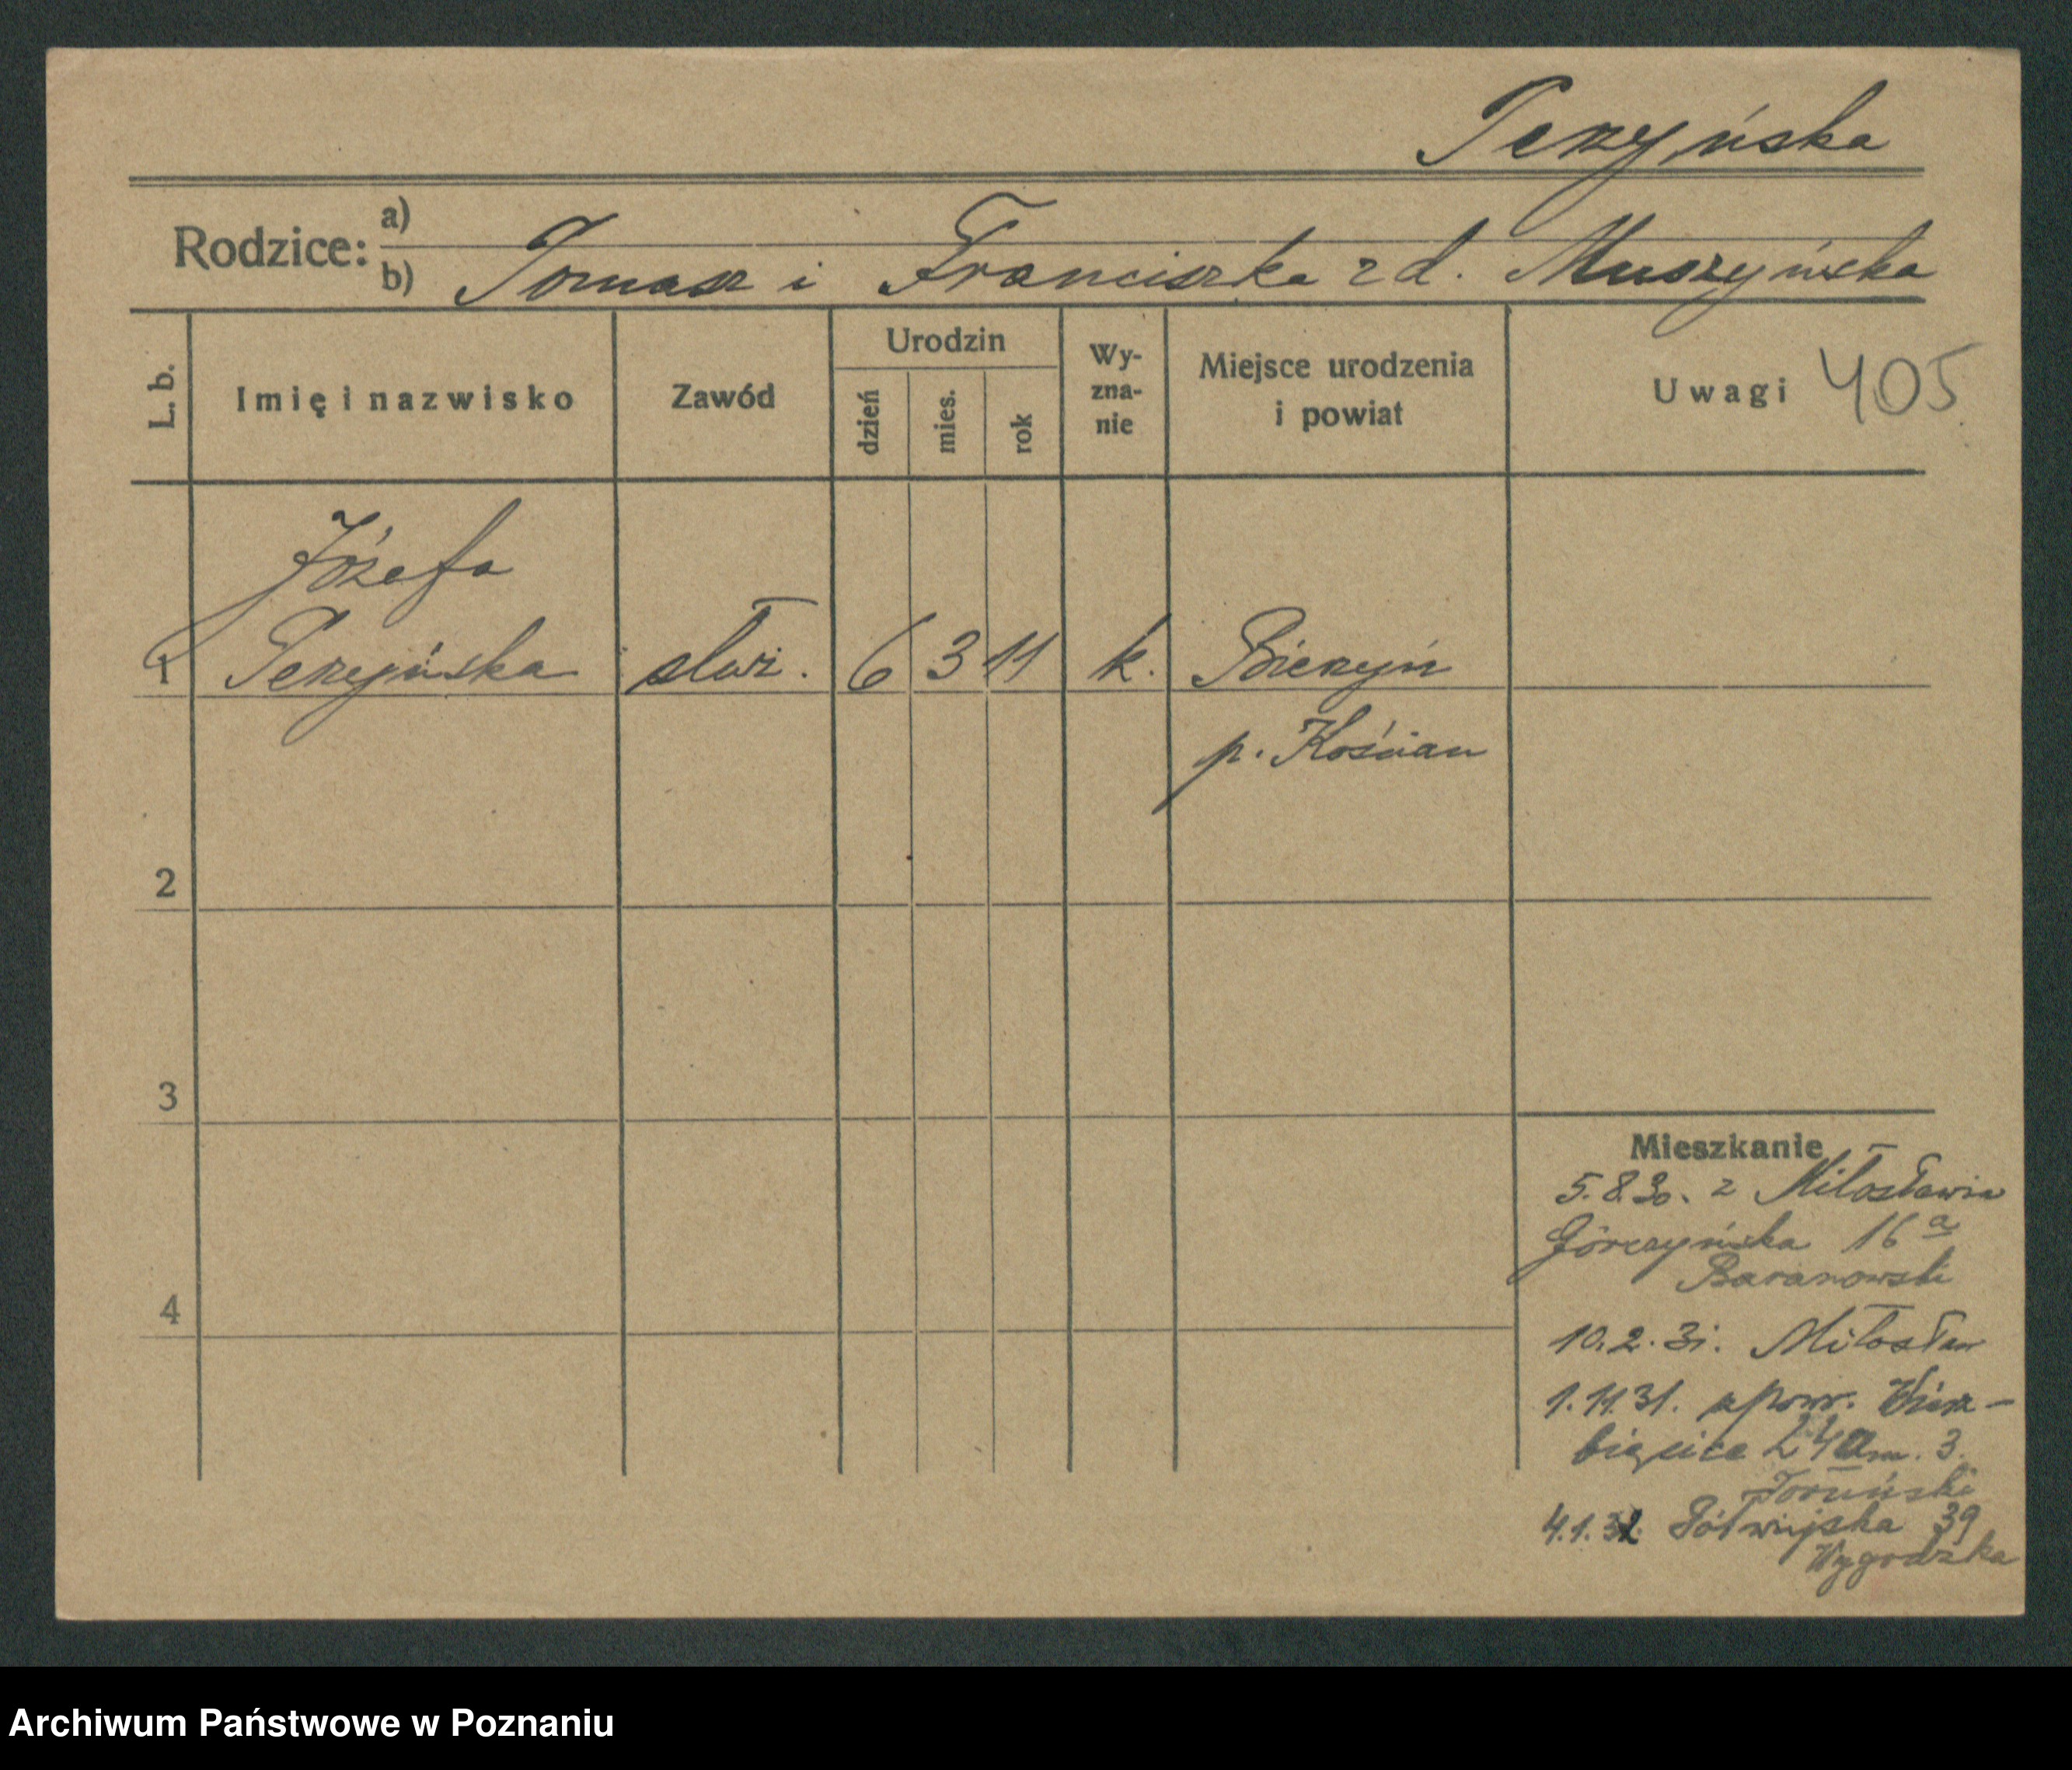 Perzyńska
Rodzice: a)
b) Tomasz i Franciszka z d. Muszyńska
L. b. Imię i nazwisko Zawód Urodzin dzień mies. rok Wy-zna-nie Miejsce urodzenia i powiat Uwagi 405
Józefa
1 Perzyńska służ. 6 3 11 k. Bierzyń
p. Kościan
2
3
4
Mieszkanie
5.8.30. z Miłosławia
Górczyńska 16 a
Baranowski
10.2.31. Miłosław
1.11.31. z powr. Wierz-
bięcice 24a m. 3.
Toruński
4.1.32 Półwiejska 39
Wygodzka
Archiwum Państwowe w Poznaniu